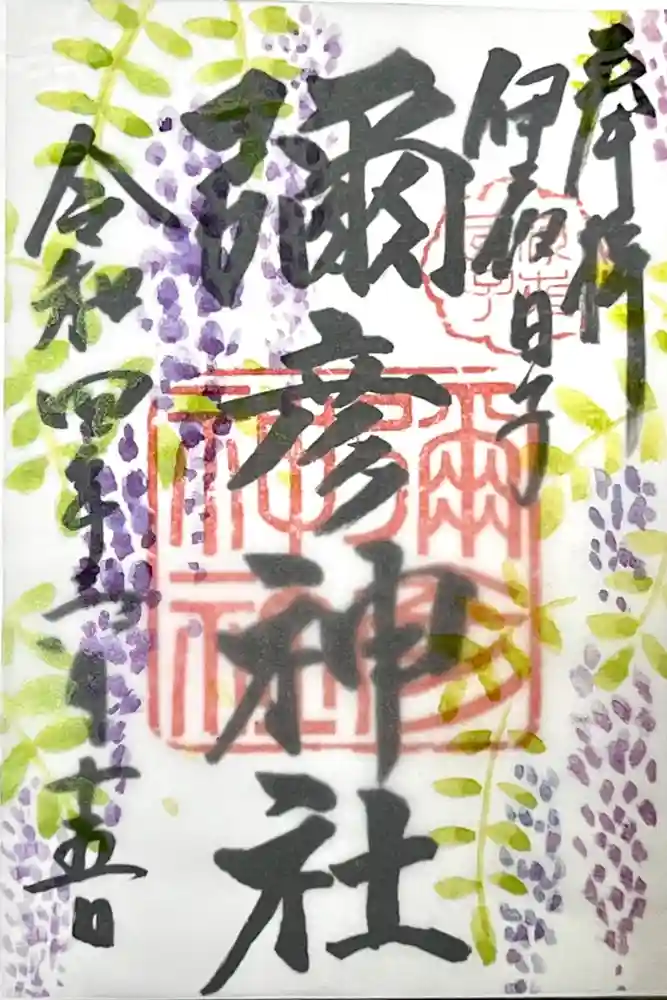 奉拝
伊夜日子
彌彦神社
彌彦神社
令和四年六月十五日